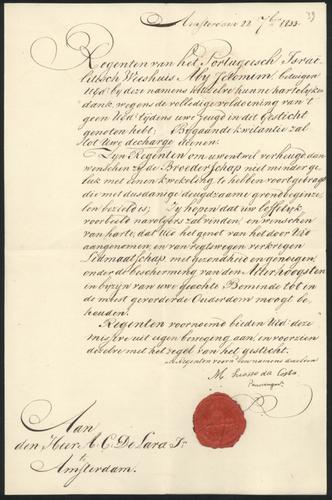 Amsterdam 22 7br 1833.
Regenten van het Portugeesch Israë-
litisch Weeshuis Aby Jetomim, betuigen
UEd: by deze namens hunne hartelyken
dank, wegens de volledige voldoening van 't
geen UEd: tydens uwe jeugd in dit Gesticht
genoten hebt; Bygaande kwitantie zal
tot Uwe decharge dienen.
Zyn Regenten om uwentwil verheugd en
wenschen zy de Broederschap niet minder ge-
luk met eenen kweekeling te hebben voortgebragt
die met dusdanige deugdzame grondbeginse-
len bezield is; Zy hopen dat uw loffelyk
voorbeeld navolgers zal vinden, en wenschen
van harte, dat UEd het genot van het door UEd
aangenomen, en van regtswege verkregen
Lidmaatschap met gezondheid en genoegen,
onder de bescherming van den Allerhoogsten
in byzyn van uwe geachte Beminde tot in
de meest gevorderde Ouderdom moogt be-
houden.
Regenten voornoemd bieden UEd: deze
missive uit eigen beweging aan, en voorzien
dezelve met het zegel van het gesticht.
De Regenten voorn: en namens dezelven
M. da Costa
Aan
den Heer A. C. De Lara Jr
te
Amsterdam.